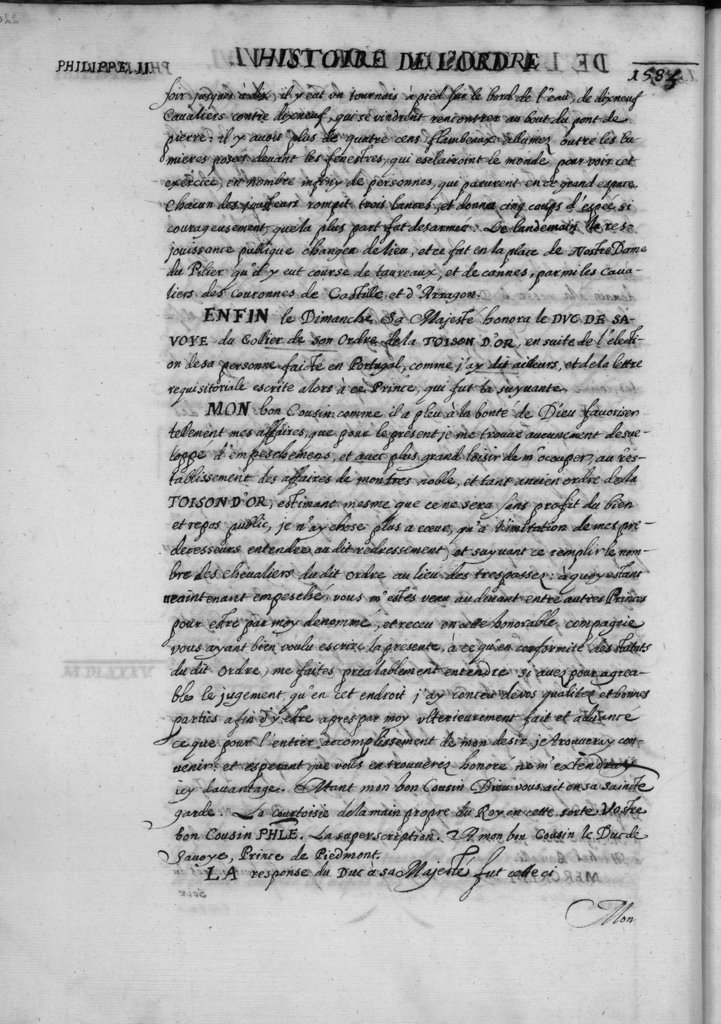 PHILIPPE. II. HISTOIRE DE L'ORDRE 1585
soir jusques à dix, il y eut un tournois à pied sur le bord de l'eau, de dixneuf
Cavaliers contre dixneuf, qui se vindrent rencontrer au bout du pont de
pierre: il y avoit plus de quatre cens flambeaux allumez outre les lu-
mieres posees devant les fenestres, qui esclairoint le monde, pour voir cet
exercice, en nombre infiny de personnes, qui parurent en ce grand espace.
Chacun des jousteurs rompit trois lances, et donna cinq coups d'espee si
courageusement, que la plus part fut desarmée. Le landemain la res-
jouissance publique changea de lieu, et ce fut en la place de Nostre Dame
du Pilier qu'il y eut course de taureaux, et de cannes, parmi les Cava-
liers des Couronnes de Castille et d'Arragon.
ENFIN le Dimanche Sa Majesté honora le DUC DE SA-
VOYE du Collier de son Ordre de la TOISON D'OR, en suite de l'electi-
on de sa personne faicte en Portugal, comme j'ay dit ailleurs, et de la lettre
requisitoriale escrite alors à ce Prince, qui fut la suyvante.
MON bon Cousin: comme il a pleu à la bonté de Dieu favoriser
tellement mes affaires, que pour le present je me trouve aucunement desve-
loppé d'empeschemens, et avec plus grand loisir de m'occuper, au re's-
tablissement des affaires de mon tres noble, et tant ancien ordre de la
TOISON D'OR, estimant mesme que ce ne sera sans profit du bien
et repos public, je n'ay chose plus a cœur, qu'à l'imitation de mes pre-
decesseurs entendre au dit redressement, et suyvant ce remplir le nom-
bre des chevaliers du dit Ordre au lieu des trespassez: à quoy estant
maintenant empesché, vous m'estes venu au devant entre autres Princes
pour estre par moy denommé, et receu en cette honorable compagnie
vous ayant bien voulu escrire la presente, à ce qu'en conformité des statuts
du dit Ordre, me faites prealablement entendre si avez pour agrea-
ble le jugement, qu'en cet endroit j'ay conceu de vos qualitez et bonnes
parties afin d'y estre apres par moy ulterieurement fait et advancé
ce que pour l'entier accomplissement de mon desir je trouveray con-
venir: et esperant que vous en trouverez honoré ne m'extenderay
icy davantage. Atant mon bon Cousin Dieu vous ait en sa saincte
garde. La courtoisie de la main propre du Roy en cette sorte Vostre
bon Cousin PHLE. La superscription. A mon bon Cousin le Duc de
Savoye, Prince de Piedmont.
LA response du Duc à sa Majesté fut celle ci
Mon